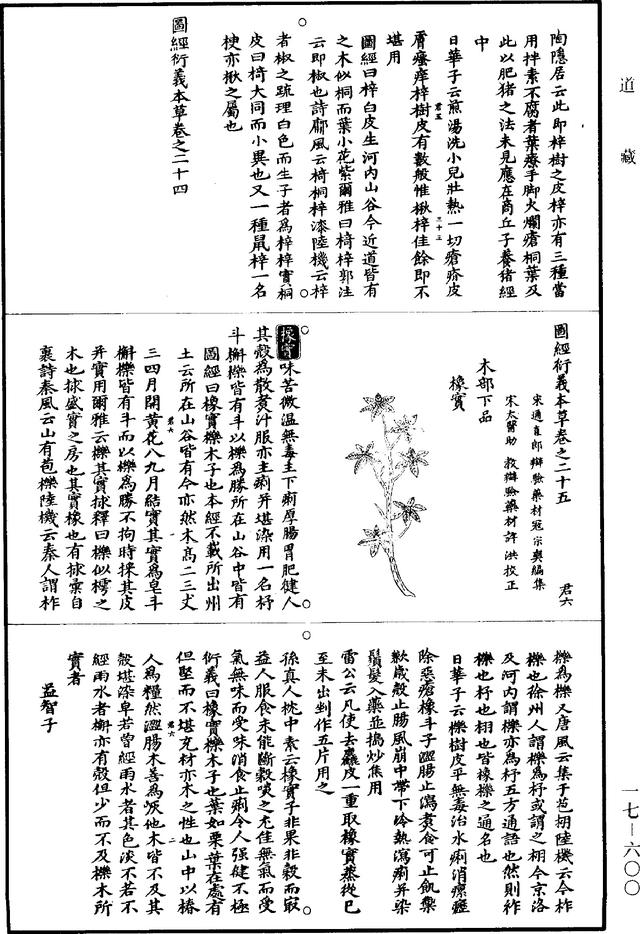 道藏
陶隱居云此即梓樹之皮梓亦有三種當
用拌素不腐者葉療手脚火爛瘡桐葉及
此以肥猪之法未見應在商丘子養猪經
中
日華子云煎湯洗小兒壯熱一切瘡疥皮
膚瘙痒梓樹皮有數般惟楸梓佳餘即不
堪用
圖經曰梓白皮生河内山谷今近道皆有
之木似桐而葉小花紫爾雅曰椅梓郭注
云即楸也詩鄘風云椅桐梓漆陸機云梓
者楸之疏理白色而生子者爲梓梓實桐
皮曰椅大同而小異也又一種鼠梓一名
楰亦楸之屬也
圖經衍義本草卷之二十四
圖經衍義本草卷之二十五
君六
宋通直郎辯驗藥材寇宗奭編集
宋太醫助教辯驗藥材許洪校正
木部下品
橡實
橡實味苦微温無毒主下痢厚腸胃肥健人
其殼爲散煑汁服亦主痢并堪染用一名杼
斗槲櫟皆有斗以櫟爲勝所在山谷中皆有
圖經曰橡實櫟木子也本經不載所出州
土云所在山谷皆有今亦然木高二三丈
三四月開黄花八九月結實其實爲皂斗
槲櫟皆有斗而以櫟爲勝不拘時採其皮
并實用爾雅云櫟其實梂釋曰櫟似樗之
木也梂盛實之房也其實橡也有梂彙自
裹詩秦風云山有苞櫟陸機云秦人謂柞
櫟爲櫟又唐風云集于苞栩陸機云今柞
櫟也徐州人謂櫟爲杼或謂之栩今京洛
及河内謂櫟亦爲杼五方通語也然則柞
櫟也杼也栩也皆橡櫟之通名也
日華子云櫟樹皮平無毒治水痢消瘰癧
除惡瘡橡斗子澀腸止瀉煑食可止飢禦
歉歲殼止腸風崩中帶下冷熱瀉痢并染
鬚髮入藥並搗炒焦用
雷公云凡使去麄皮一重取橡實蒸從巳
至未出剉作五片用之
孫真人枕中素云橡實子非果非穀而㝡
益人服食未能斷穀啖之尤佳無氣而受
氣無味而受味消食止痢令人强健不極
衍義曰橡實櫟木子也葉如栗葉在處有
但堅而不堪充材亦木之性也山中以椿
人爲糧然澀腸木善爲炭他木皆不及其
殼堪染皂若曾經雨水者其色淡不若不
經雨水者槲亦有殼但少而不及櫟木所
實者
益智子
一七—六〇〇